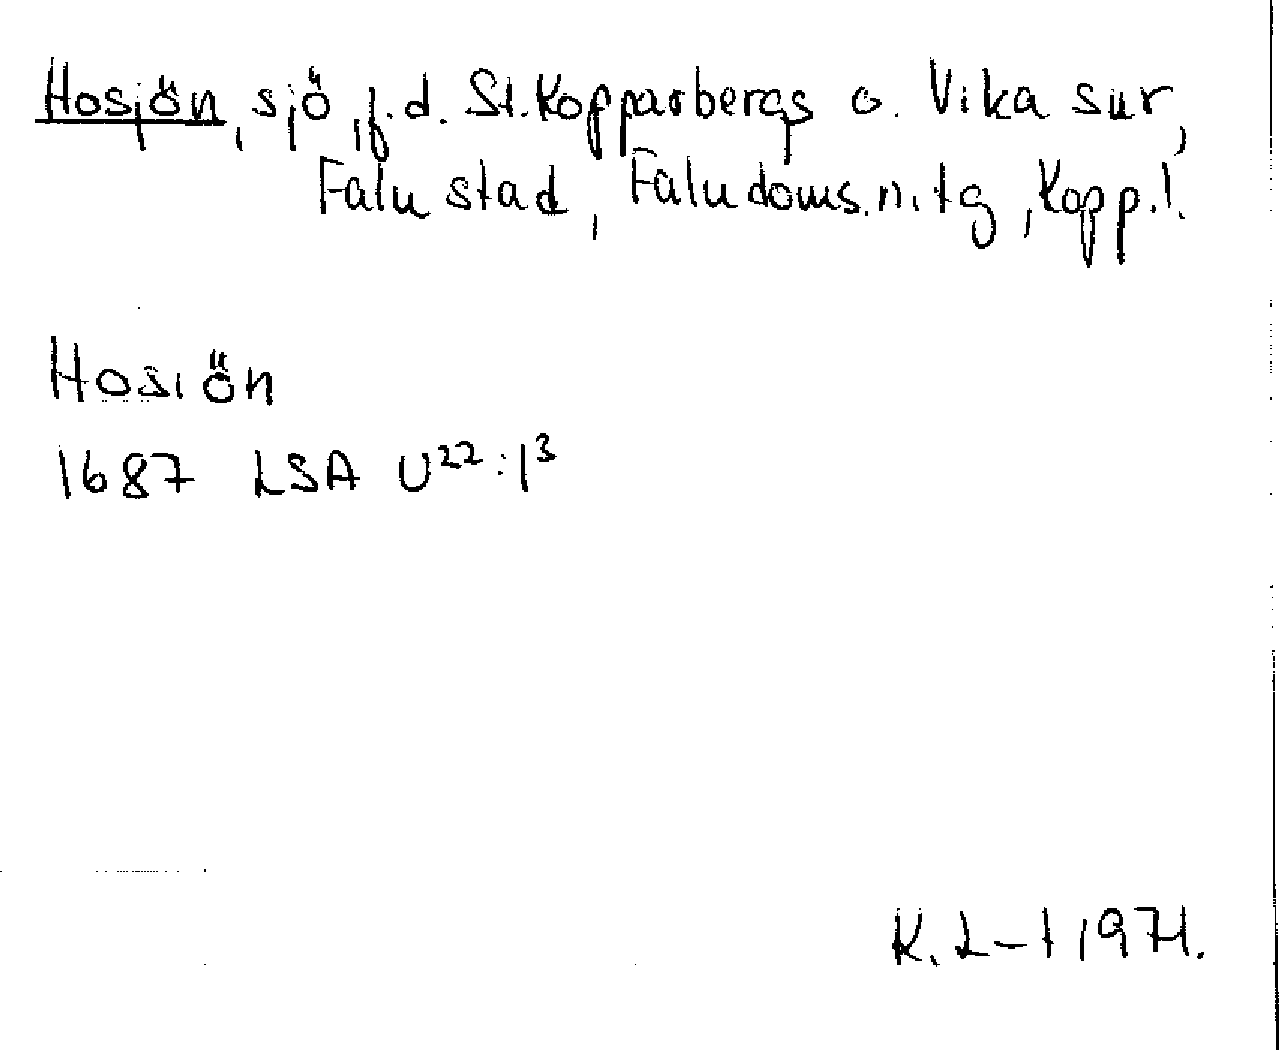 Hosjön, sjö, f.d. St. Kopparbergs o. Vika snr,
Falu stad, Falu doms. n. tg, Kopp. l.
Hosiön
1687 LSA U²²:1³
K. L-t 1971.